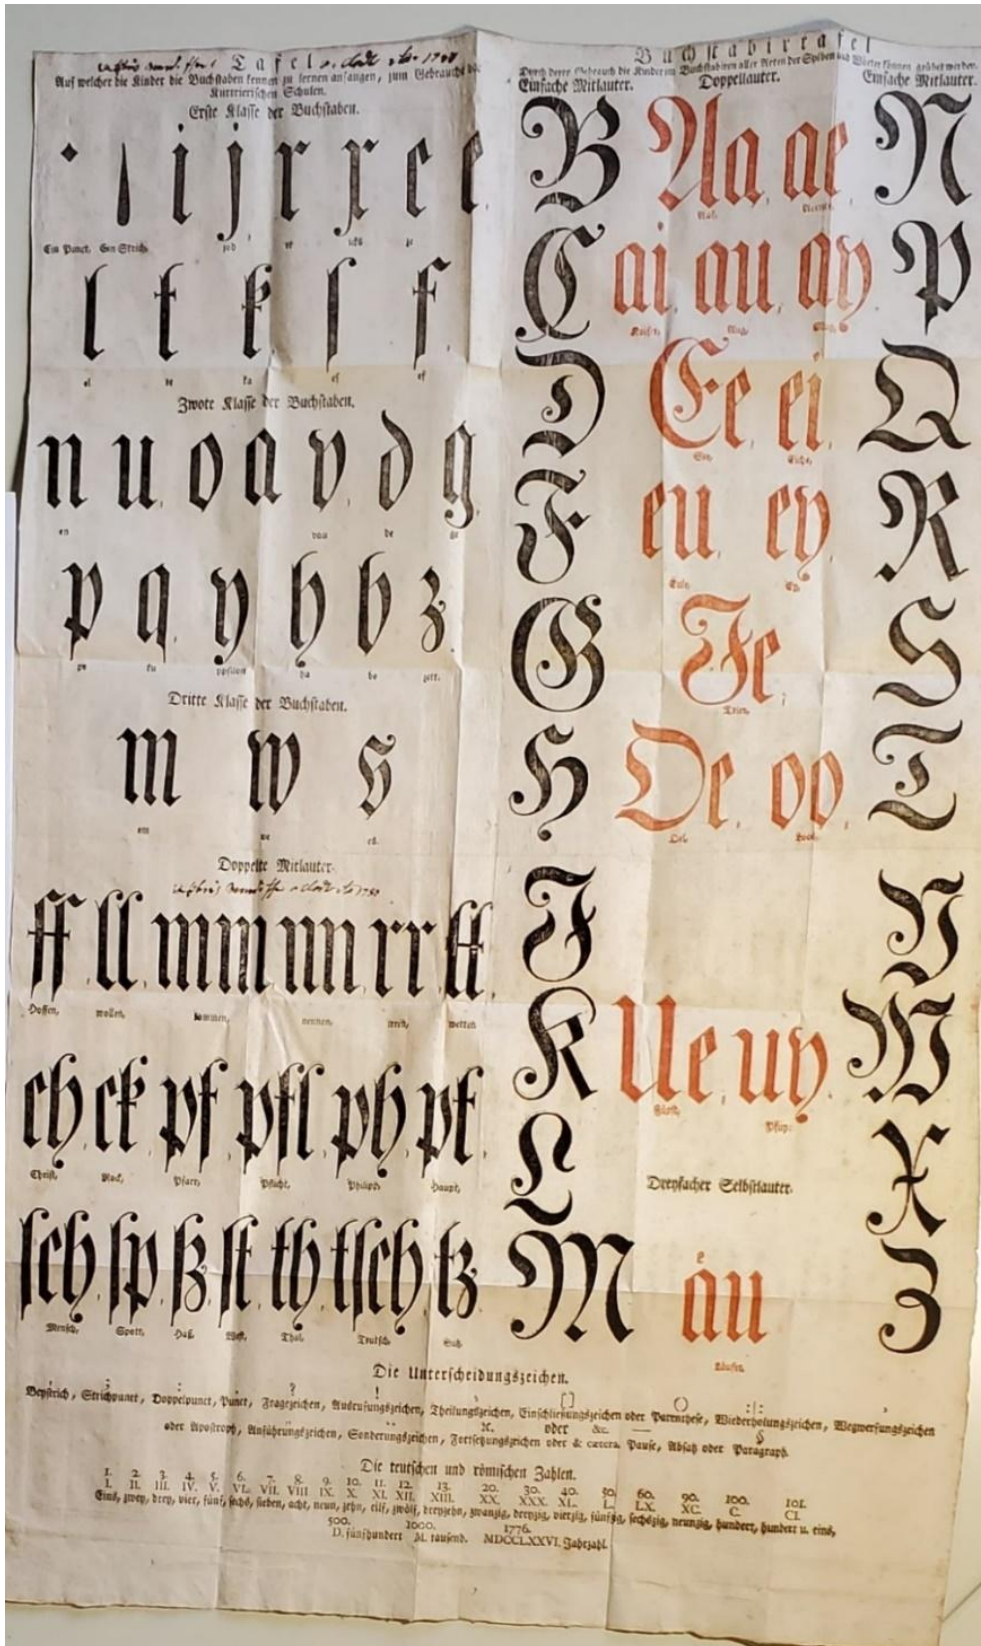 Tafel
Auf welcher die Kinder die Buchstaben kennen zu lernen anfangen, zum Gebrauche der
Kurtrierischen Schulen.
Erste Klasse der Buchstaben.
i j r x c e
Ein Punct. Ein Strich. jod er icks ze
l t k ſ f
el te ka eſ ef
Zwote Klasse der Buchstaben.
n u o a v d g
en vau de ge
p q y h b z
pe ku ypsilon ha be zett.
Dritte Klasse der Buchstaben.
m w s
em we es
Doppelte Mitlauter.
ff ll mm nn rr tt
Hoffen, wollen, kommen, nennen, irren, wetten
ch ck pf pfl ph pt
Christ, Rock, Pfarr, Pflicht, Philipp, Haupt,
ſch ſp ß ſt th tſch tz
Mensch, Spott, Haß, Thal, Teutsch,
Buchstabirtafel
Durch deren Gebrauch die Kinder im Buchstabiren aller Arten der Sylben und Wörter können geübet werden.
Einfache Mitlauter. Doppellauter. Einfache Mitlauter.
B Aa, ae N
Aal,
C ai, au, ay P
D Ee, ei Q
F eu, ey R
Eule,
G Ie S
H Oe, oo T
J V
K Ue, uy W
L X
Dreyfacher Selbstlauter.
M äu Z
Die Unterscheidungszeichen.
Beystrich, Strichpunct, Doppelpunct, Punct, Fragezeichen, Ausrufungszeichen, Theilungszeichen, Einschließungszeichen oder Parenthese, Wiederholungszeichen, Wegwerfungszeichen
oder Apostroph, Anführungszeichen, Sonderungszeichen, Fortsetzungszeichen oder & cætera Pause, Absatz oder Paragraph.
Die teutschen und römischen Zahlen.
1. 2. 3. 4. 5. 6. 7. 8. 9. 10. 11. 12. 13. 20. 30. 40. 50. 60. 90. 100. 101.
I. II. III. IV. V. VI. VII. VIII IX. X. XI. XII. XIII. XX. XXX. XL. L. LX. XC. C. CI.
Eins, zwey, drey, vier, fünf, sechs, sieben, acht, neun, zehn, eilf, zwölf, dreyzehn, zwanzig, dreyzig, vierzig, fünfzig, sechszig, neunzig, hundert, hundert u. eins,
500. 1000. 1776.
D. fünfhundert M. tausend. MDCCLXXVI. Jahrzahl.